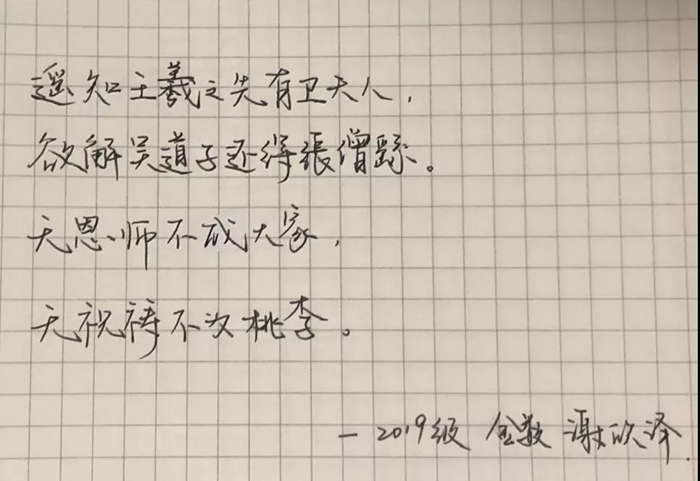 遥知王羲之先有卫夫人，
欲解吴道子还得張僧繇。
无恩师不成大家，
无祝祷不次桃李。
—2019级 金数 谢欣泽